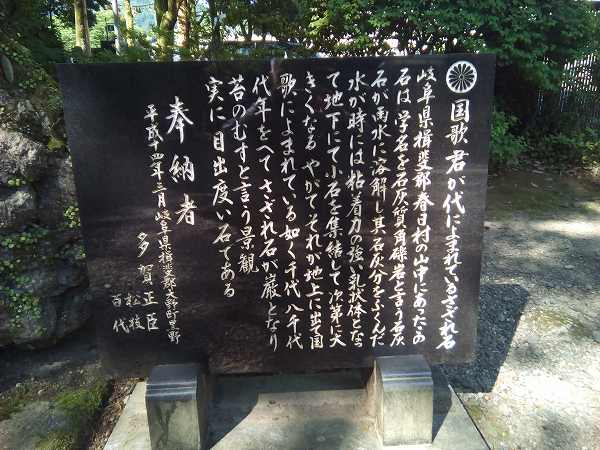 国歌君が代によまれているさざれ石
岐阜県揖斐郡春日村の山中にあったこの
石は、学名を石灰質角礫岩と言う石灰
石が雨水に溶解し其石灰分をふくんだ
水が時には粘着力の強い乳状体となっ
て地下にて小石を集結して次第に大
きくなる やがてそれが地上に出て国
歌によまれている如く千代八千代
代年をへてさざれ石が巌となり
苔のむすと言う景観
実に目出度い石である
奉納者
平成十四年三月岐阜県揖斐郡大野町黒野
多賀正臣
松枝
百代